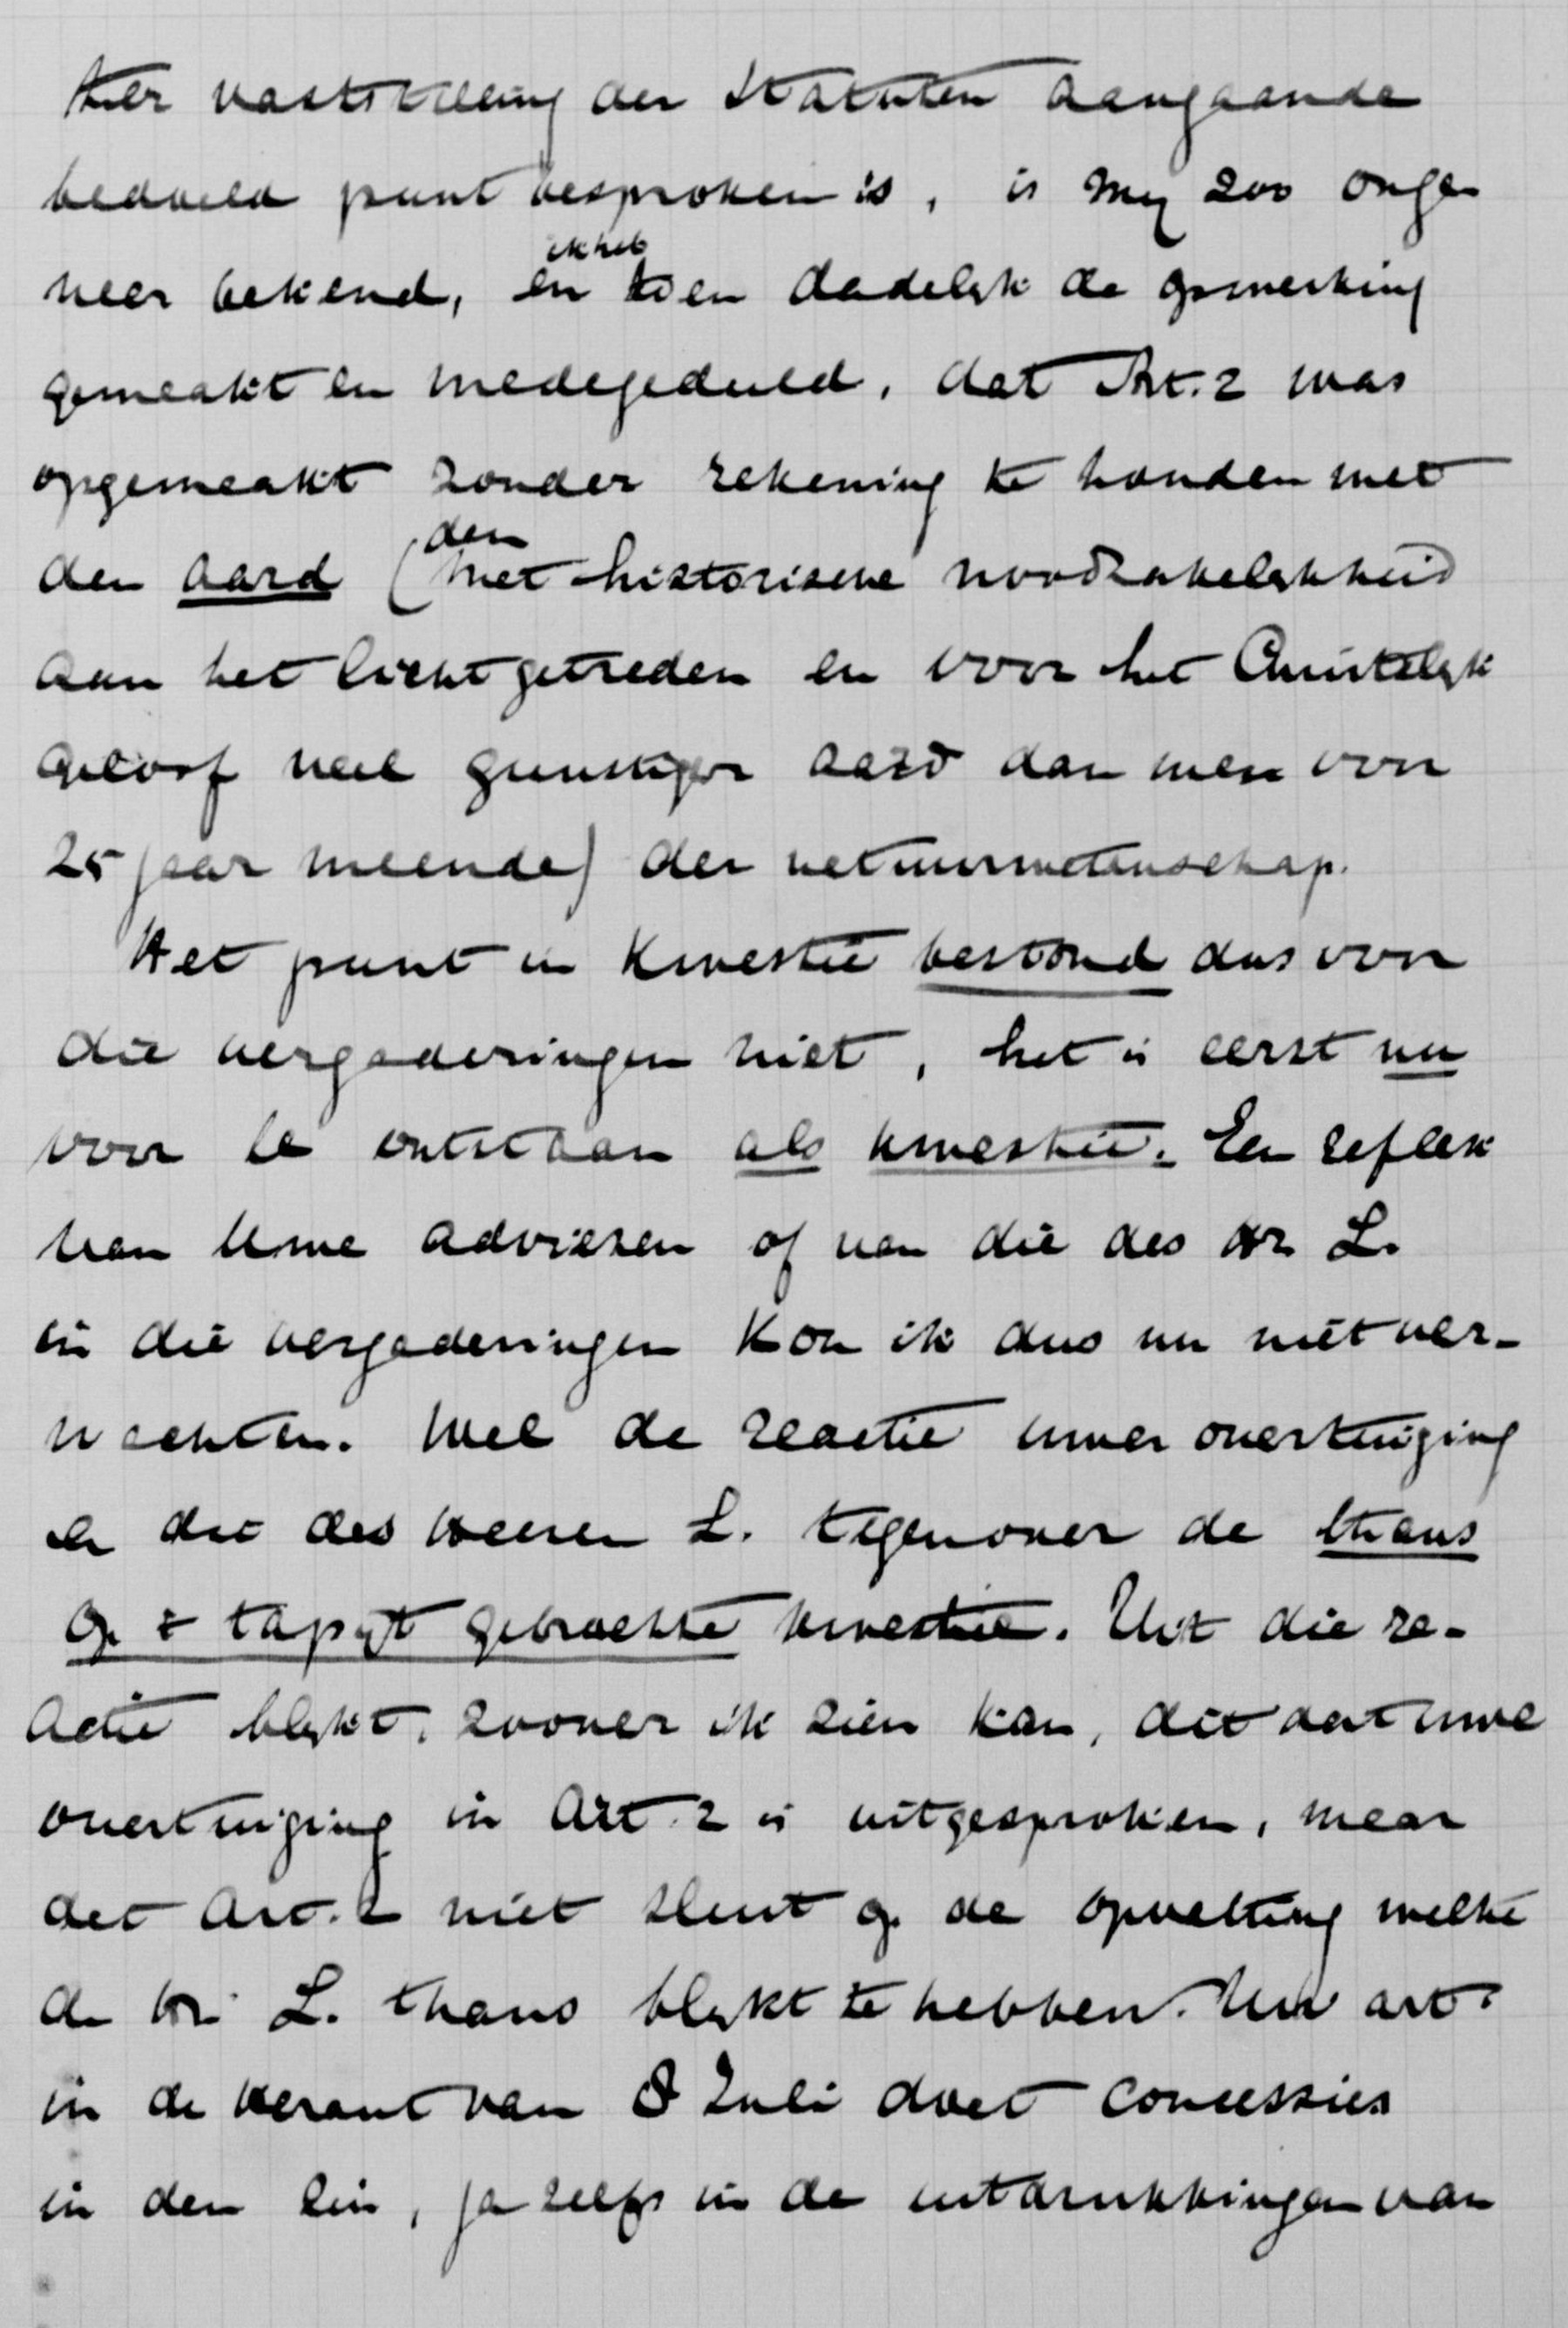 ter vaststelling der Statuten aangaande
bedoeld punt besproken is, is mij zoo onge
veer bekend, en ik heb toen dadelijk de opmerking
gemaakt en medegedeeld, dat Art. 2 was
opgemaakt zonder rekening te houden met
den aard (den met historische noodzakelijkheid
aan het licht getreden en voor het Christelijk
geloof veel gunstiger aard dan men voor
25 jaar meende) der natuurwetenschap.
Het punt in kwestie bestond dus voor
die vergaderingen niet, het is eerst nu
voor te ontstaan als kwestie. Een reflex
van Uwe adviezen of van die des hr L.
in die vergaderingen kon ik dus nu niet ver-
wachten. Wel de reactie uwer overtuiging
en die des Heeren L. tegenover de thans
op 't tapijt gebrachte kwestie. Uit die re-
actie blijkt, zoover ik zien kan, dit dat uwe
overtuiging in Art. 2 is uitgesproken, maar
dat Art. 2 niet sluit op de opvatting welke
de hr. L. thans blijkt te hebben. Uw art.
in de Heraut van 8 Juli doet concessies
in den zin, ja zelfs in de uitdrukkingen van